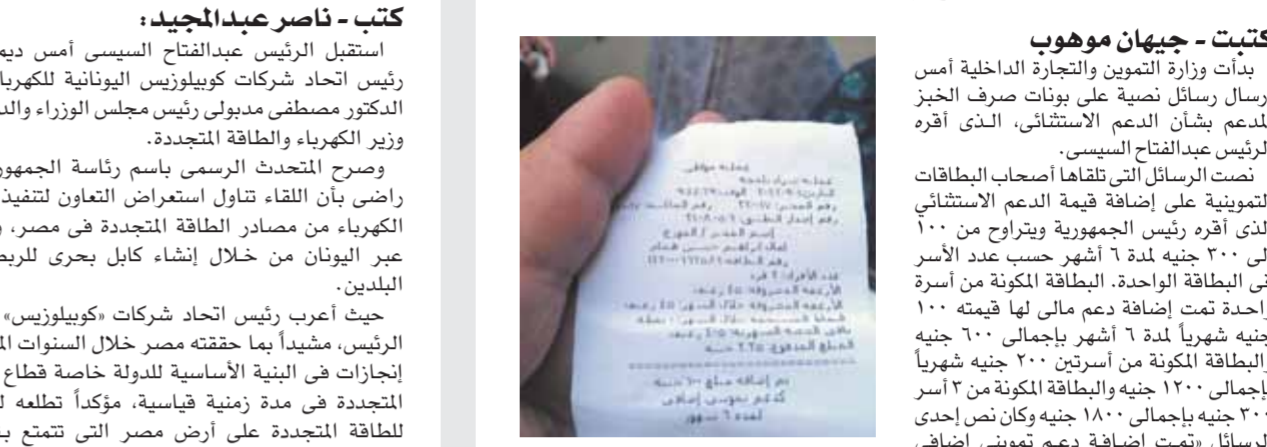 كتبت - جيهان موهوب
بدأت وزارة التموين والتجارة الداخلية أمس
إرسال رسائل نصية على بونات صرف الخبز
المدعم بشأن الدعم الاستثنائى، الـذى أقره
الرئيس عبدالفتاح السيسى.
نصت الرسائل التى تلقاها أصحاب البطاقات
التموينية على إضافة قيمة الدعم الاستثنائي
الذى أقره رئيس الجمهورية ويتراوح من ١٠٠
إلى ٣٠٠ جنيه لمدة ٦ أشهر حسب عدد الأسر
فى البطاقة الواحدة. البطاقة المكونة من أسرة
واحدة تمت إضافة دعم مالى لها قيمته ١٠٠
جنيه شهرياً لمدة ٦ أشهر بإجمالى ٦٠٠ جنيه
والبطاقة المكونة من أسرتين ٢٠٠ جنيه شهرياً
بإجمالى ١٢٠٠ جنيه والبطاقة المكونة من ٣ أسر
٣٠٠ جنيه بإجمالى ١٨٠٠ جنيه وكان نص إحدى
الرسائل «تمـت إضـافـة دعـم تموينى إضافى
المبلغ المدفوع: ٢.٢٥ جنيه
تم إضافة مبلغ ٦٠٠ جنيه
كدعم تموينى إضافى
لمدة ٦ شهور
كتب - ناصر عبدالمجيد:
استقبل الرئيس عبدالفتاح السيسى أمس
رئيس اتحاد شركات كوبيلوزيس اليونانية
الدكتور مصطفى مدبولى رئيس مجلس الوزراء
وزير الكهرباء والطاقة المتجددة.
وصرح المتحدث الرسمى باسم رئاسة
راضى بأن اللقاء تناول استعراض التعاون لتنفيذ
الكهرباء من مصادر الطاقة المتجددة فى مصر،
عبر اليونان من خـلال إنشاء كابل بحرى
البلدين.
حيث أعرب رئيس اتحاد شركات «كوبيلوزيس»
الرئيس، مشيداً بما حققته مصر خلال السنوات
إنجازات فى البنية الأساسية للدولة خاصة قطاع
المتجددة فى مدة زمنية قياسية، مؤكداً تطلعه
للطاقة المتجددة على أرض مصر التى تتمتع